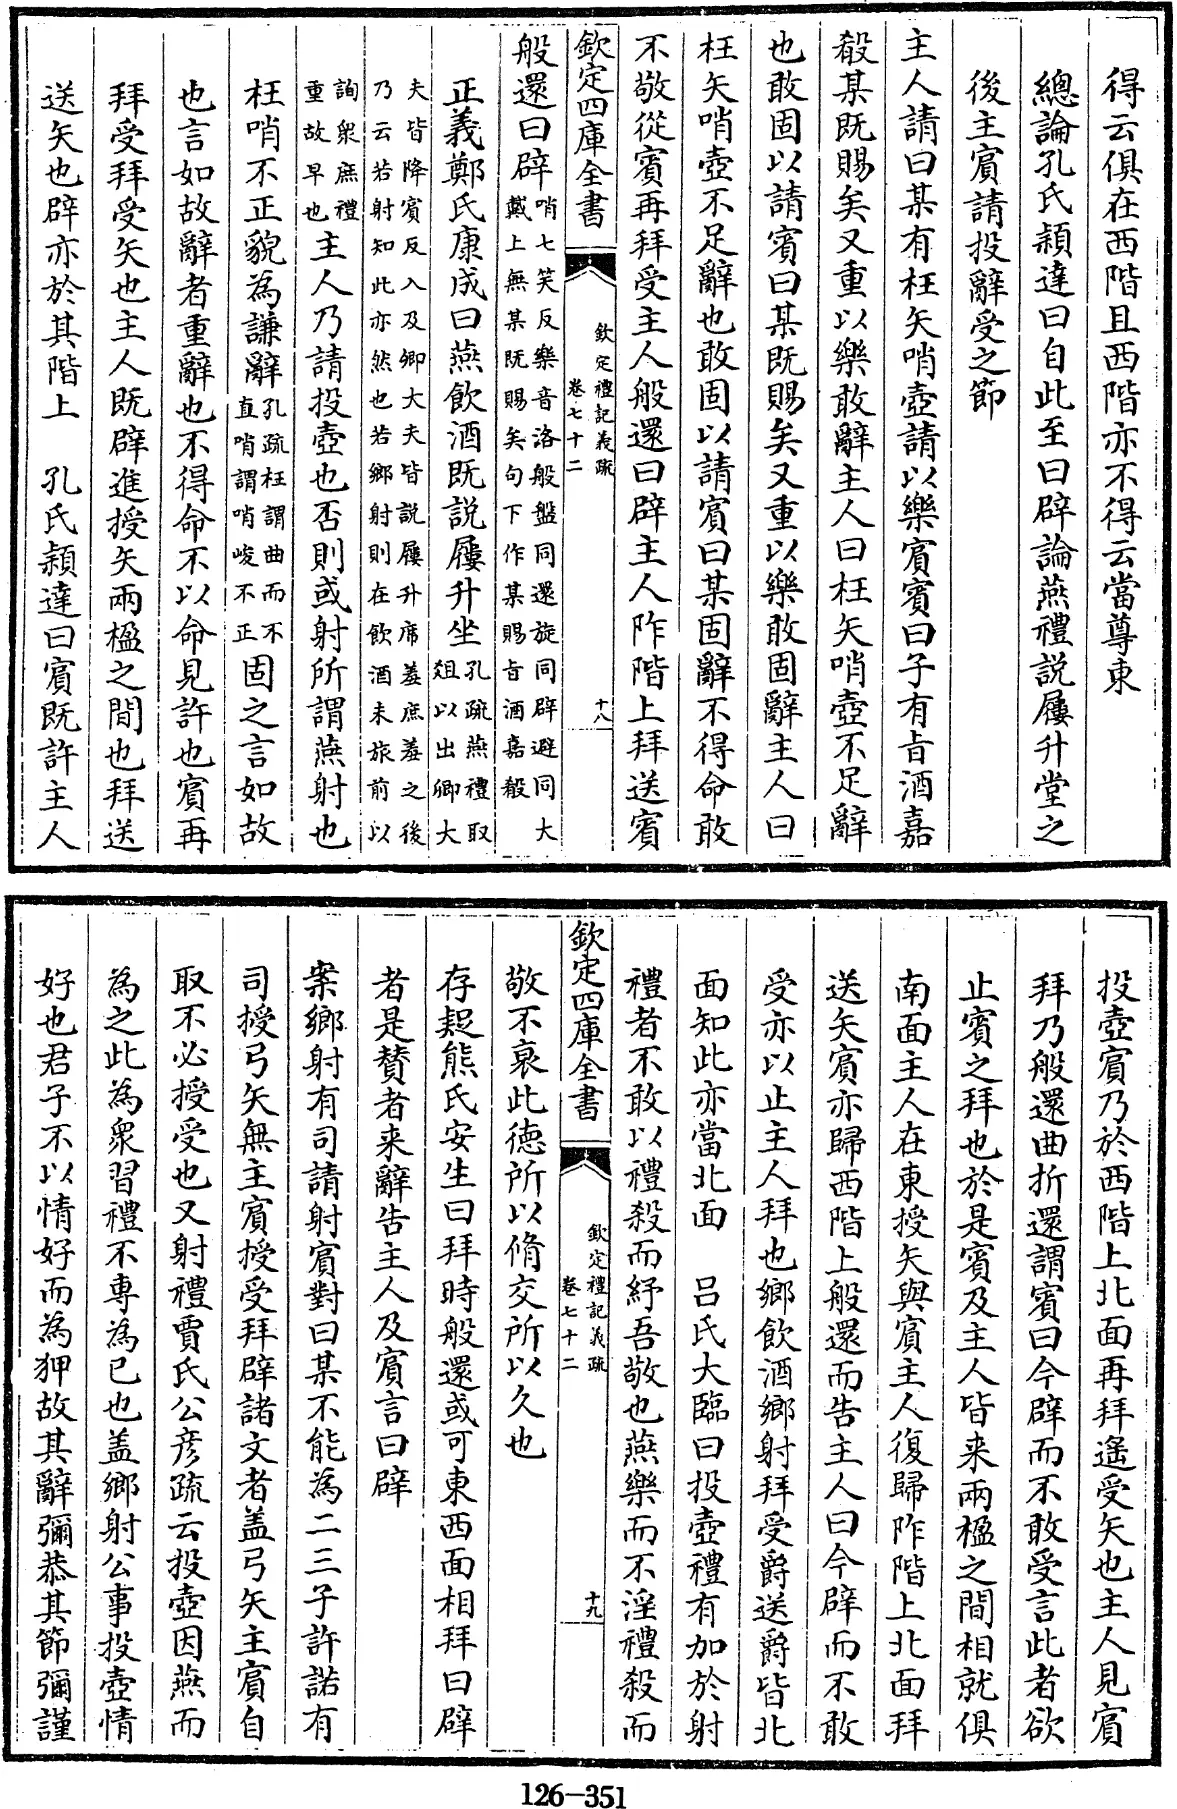 得云俱在西階且西階亦不得云當尊東
總論孔氏穎達曰自此至曰辟論燕禮説屨升堂之
後主賓請投辭受之節
主人請曰某有枉矢哨壺請以樂賓賓曰子有旨酒嘉
殽某既賜矣又重以樂敢辭主人曰枉矢哨壺不足辭
也敢固以請賓曰某既賜矣又重以樂敢固辭主人曰
枉矢哨壺不足辭也敢固以請賓曰某固辭不得命敢
不敬從賓再拜受主人般還曰辟主人阼階上拜送賓
欽定四庫全書
欽定禮記義疏
卷七十二
十八
般還曰辟哨七笑反樂音洛般盤同還旋同辟避同大
戴上無某既賜矣句下作某賜旨酒嘉殽
正義鄭氏康成曰燕飲酒既説屨升坐孔疏燕禮取
俎以出卿大
夫皆降賓反入及卿大夫皆説屨升席羞庶羞之後
乃云若射知此亦然也若鄉射則在飲酒未旅前以
詢衆庶禮
重故早也主人乃請投壺也否則或射所謂燕射也
枉哨不正貌為謙辭孔疏枉謂曲而不
直哨謂哨峻不正固之言如故
也言如故辭者重辭也不得命不以命見許也賓再
拜受拜受矢也主人既辟進授矢兩楹之間也拜送
送矢也辟亦於其階上　孔氏穎達曰賓既許主人
投壺賓乃於西階上北面再拜遙受矢也主人見賓
拜乃般還曲折還謂賓曰今辟而不敢受言此者欲
止賓之拜也於是賓及主人皆来兩楹之間相就俱
南面主人在東授矢與賓主人復歸阼階上北面拜
送矢賓亦歸西階上般還而告主人曰今辟而不敢
受亦以止主人拜也鄉飲酒鄉射拜受爵送爵皆北
面知此亦當北面　吕氏大臨曰投壺禮有加於射
禮者不敢以禮殺而紓吾敬也燕樂而不淫禮殺而
欽定四庫全書
欽定禮記義疏
卷七十二
十九
敬不衰此徳所以脩交所以久也
存疑熊氏安生曰拜時般還或可東西面相拜曰辟
者是賛者来辭告主人及賓言曰辟
案鄉射有司請射賓對曰某不能為二三子許諾有
司授弓矢無主賓授受拜辟諸文者盖弓矢主賓自
取不必授受也又射禮賈氏公彦疏云投壺因燕而
為之此為衆習禮不專為己也盖鄉射公事投壺情
好也君子不以情好而為狎故其辭彌恭其節彌謹
126-351